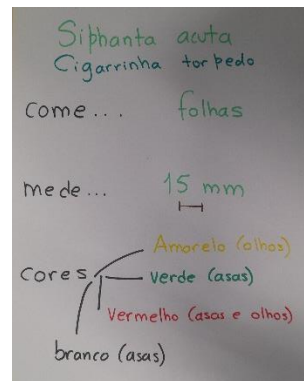 Siphanta acuta
Cigarrinha torpedo
come... folhas
mede... 15 mm
Amarelo (olhos)
cores verde (asas)
Vermelho (asas e olhos)
branco (asas)